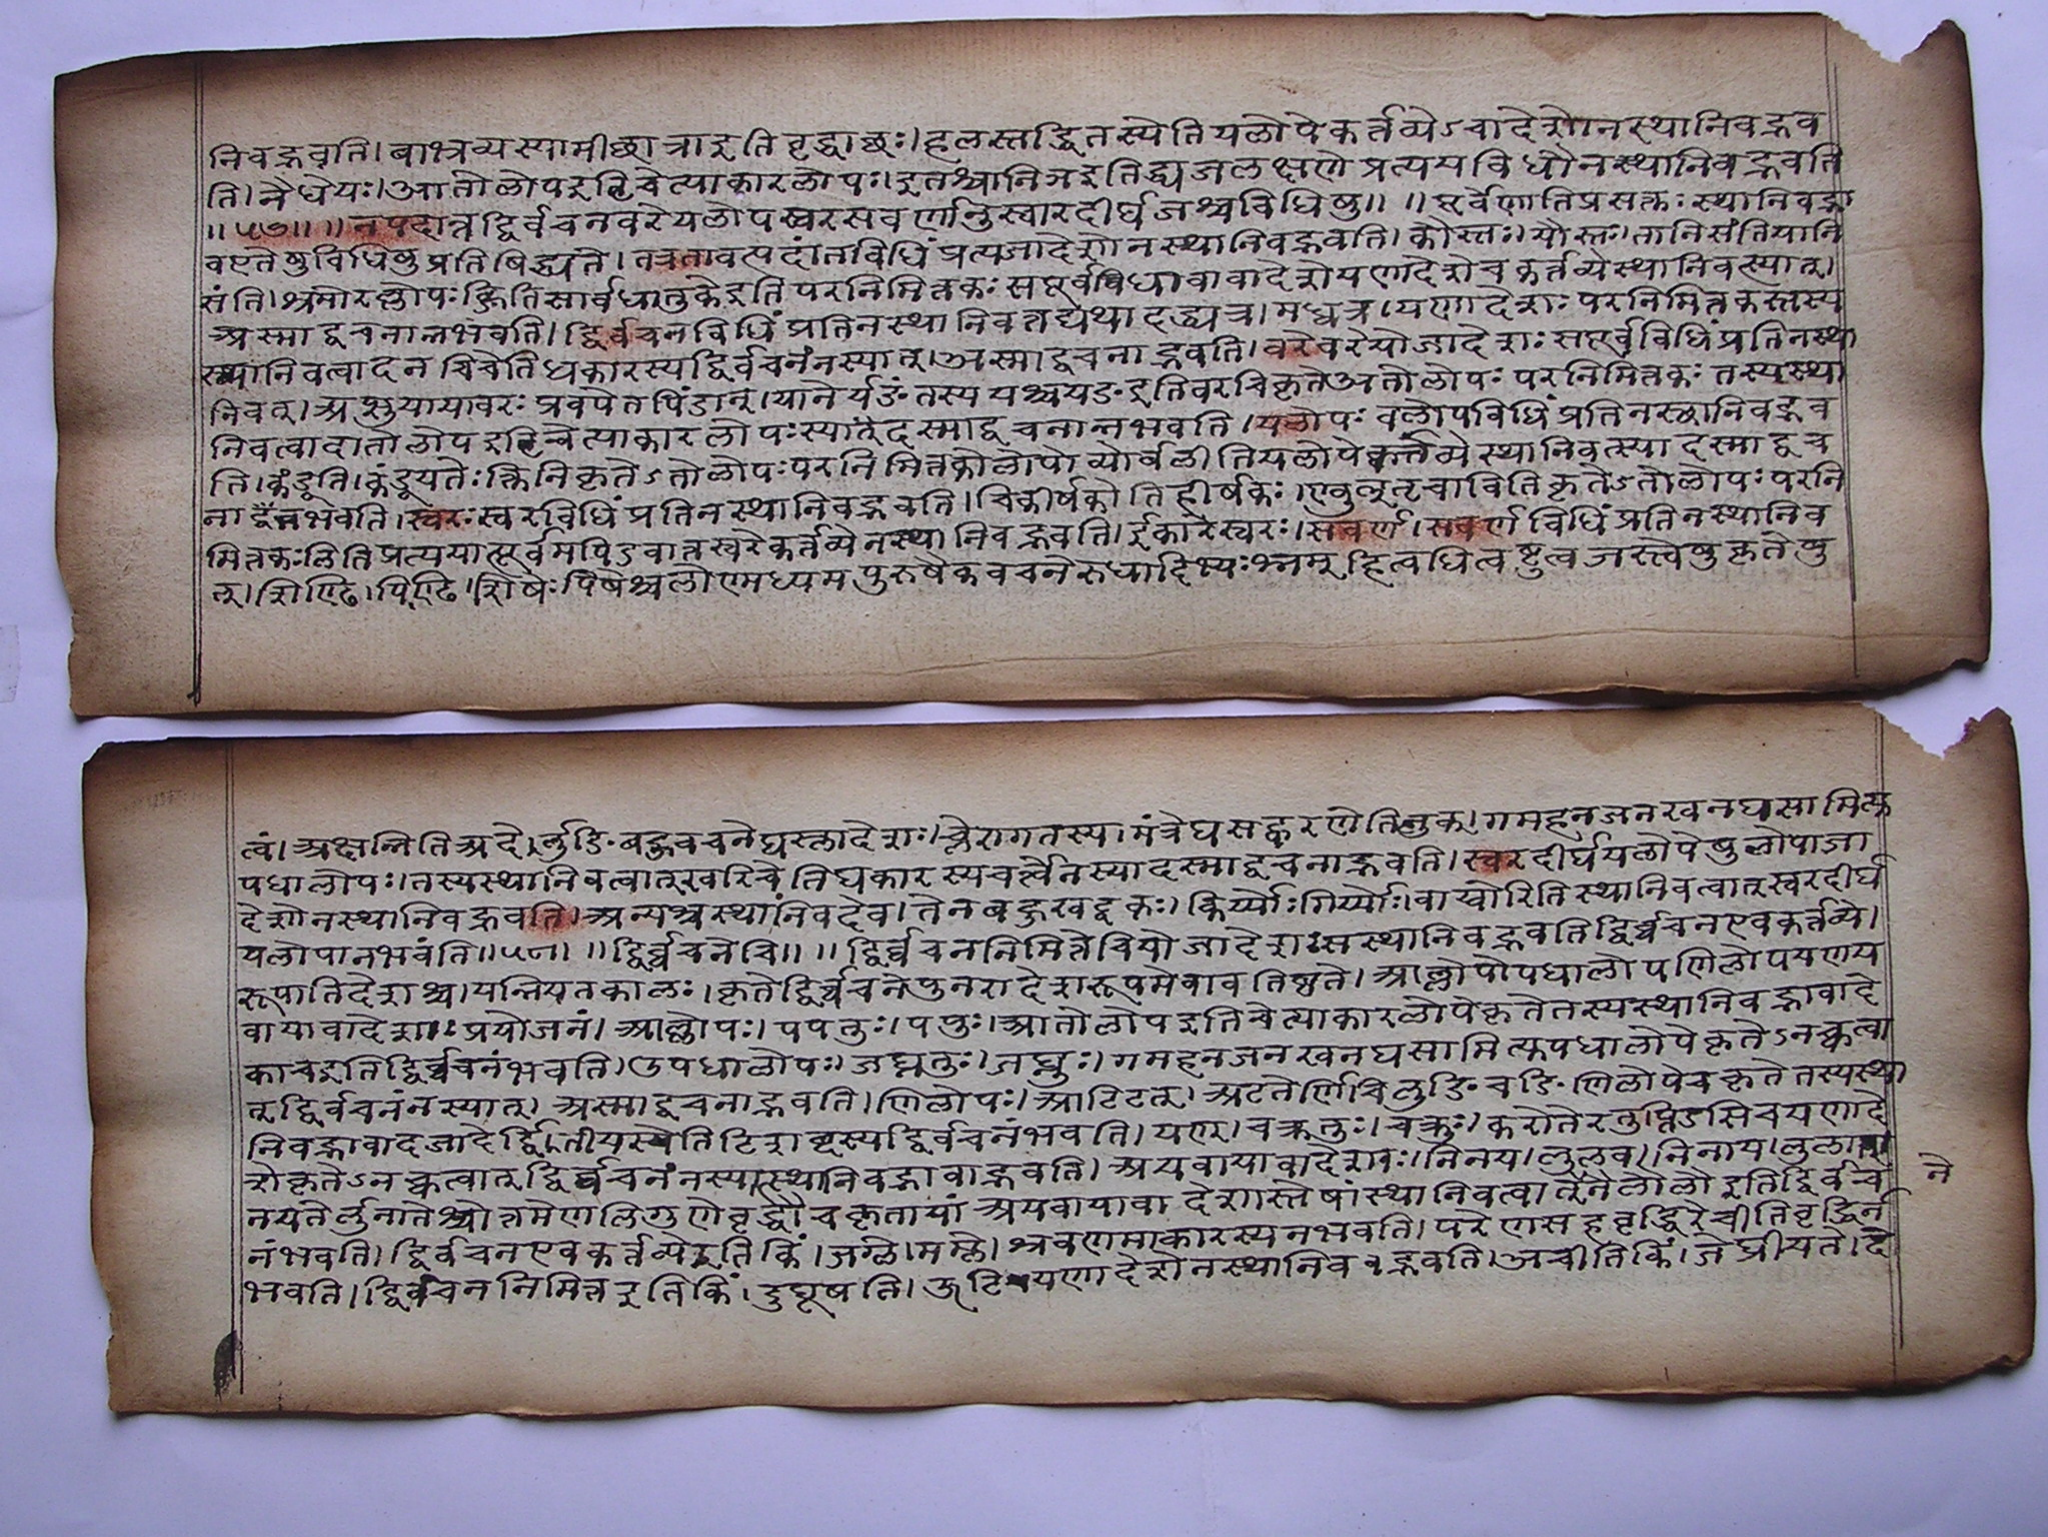 निवद्भवति। बाभ्रव्यस्यामीछात्राइतिवृद्धाछः। हलस्तद्धितस्येतियलोपेकर्तव्येऽवादेशोनस्थानिवद्भव
ति। नैधेयः। आतोलोपइटिचेत्याकारलोपः। इतश्चानिञइतिद्व्यजलक्षणेप्रत्ययविधौनस्थानिवद्भवति
॥५७॥ ॥नपदान्तद्विर्वचनवरेयलोपस्वरसवर्णानुस्वारदीर्घजश्चविधिषु॥ ॥पूर्वेणातिप्रसक्तः स्थानिवद्भा
वएतेषुविधिषुप्रतिषिद्ध्यते। तत्रतावत्पदांतविधिंप्रत्यजादेशोनस्थानिवद्भवति। कौस्तः। यौस्तः। तानिसंतियानि
संति। श्नसोरल्लोपः क्ङितिसार्वधातुकेइतिपरनिमित्तकः सपूर्वविधावावादेशेयणादेशेचकर्तव्येस्थानिवत्स्यात्।
अस्माद्वचनान्नभवति। द्विर्वचनविधिंप्रतिनस्थानिवत्तद्यथादद्ध्यत्र। मध्वत्र। यणादेशः परनिमित्तकस्तस्य
स्थानिवत्वादनचिचेतिधकारस्यद्विर्वचनंनस्यात्। अस्माद्वचनाद्भवति। वरेवरेयोजादेशः सपूर्वविधिंप्रतिनस्था
निवत्। अप्सुयायावरः प्रवपेतपिंडान्। यातेर्यङंतस्य यश्चयङइतिवरचिकृतेअतोलोपः परनिमित्तकः तस्यस्था
निवत्वादातोलोपइटिचेत्याकारलोपः स्यात्दस्माद्वचनान्नभवति। यलोपः यलोपविधिंप्रतिनस्थानिवद्भव
ति। कंडूति। कंडूयतेः क्तिनिकृतेऽतोलोपः परनिमित्तकोलोपोव्योर्वलीतियलोपेकर्तव्येस्थानिवत्स्यादस्माद्वच
नान्नभवति। स्वरः स्वरविधिंप्रतिनस्थानिवद्भवति। चिकीर्षकोजिहीर्षकः। ण्वुल्तृचावितिकृतेऽतोलोपः परनि
मित्तकः लितिप्रत्ययात्पूर्वमपिऽवात्तस्वरेकर्तव्येनस्थानिवद्भवति। ईकारेस्वरः। सवर्ण। सवर्णविधिंप्रतिनस्थानिव
त्। शिण्ढि। पिण्ढि। शिषेः पिषेश्चलोण्मध्यमपुरुषैकवचनेरुधादिभ्यः श्नम् हित्वधित्वष्टुत्वजस्त्वेषुकृतेषु
त्वं। अक्षन्नितिअदेर्लुङिबहुवचनेघस्लादेशः। च्लेरागतस्य। मंत्रेघसह्वरणेतिलुक्। गमहनजनखनघसामित्यु
पधालोपः। तस्यस्थानिवत्वात्खरिचेतिघकारस्यचर्त्वंनस्यादस्माद्वचनाद्भवति। स्वरदीर्घयलोपेषुलोपाजा
देशोनस्थानिवद्भवति। अन्यश्चस्थानिवदेव। तेनबहुखट्वकः। किर्य्योः गिर्य्योः। वाय्वोरितिस्थानिवत्वात्स्वरदीर्घ
यलोपानभवंति॥५८॥ ॥द्विर्वचनेचि॥ ॥द्विर्वचननिमित्तेचियोजादेशः सस्थानिवद्भवतिद्विर्वचनएवकर्तव्ये।
रूपातिदेशश्च। यन्नियतकालः। कृतेद्विर्वचनेपुनरादेशरूपमेवावतिष्ठते। आल्लोपोपधालोपणिलोपयणय
वायावादेशाः प्रयोजनं। आल्लोपः। पपतुः। पपुः। आतोलोपइतिचेत्याकारलोपेकृतेतस्यस्थानिवद्भावादे
काचइतिद्विर्वचनंभवति। उपधालोपः। जघ्नतुः। जघ्नुः। गमहनजनखनघसामित्युपधालोपेकृतेऽनच्कत्वा
त्द्विर्वचनंनस्यात्। अस्माद्वचनाद्भवति। णिलोपः। आटिटत्। अटतेर्णिचिलुङिचङिणिलोपेचकृतेतस्यस्था
निवद्भावादजादेर्द्वितीयस्येतिटिशब्दस्यद्विर्वचनंभवति। यण्। चक्रतुः। चक्रुः। करोतेरतुसिउसिचयणादे
शेकृतेऽनच्कत्वात्द्विर्वचनंनस्यात्स्थानिवद्भावाद्भवति। अयवायावादेशाः। निनय। लुलव। निनाय। लुलाव।
नयतेर्लुनातेश्चोत्तमेणलिगुणेवृद्धौचकृतायांअयवायावादेशास्तेषांस्थानिवत्वात्नेलोलोइतिद्विर्वच
नंभवति। द्विर्वचनएवकर्तव्येइतिकिं। जग्ले। मम्ले। श्रवणमाकारस्यनभवति। परेणसहवृद्धिरेचीतिवृद्धिर्न
भवति। द्विर्वचननिमित्तइतिकिं। दुद्यूषति। ऊटियणादेशोनस्थानिवद्भवति। अचीतिकिं। जेघ्रीयते। दे
ने